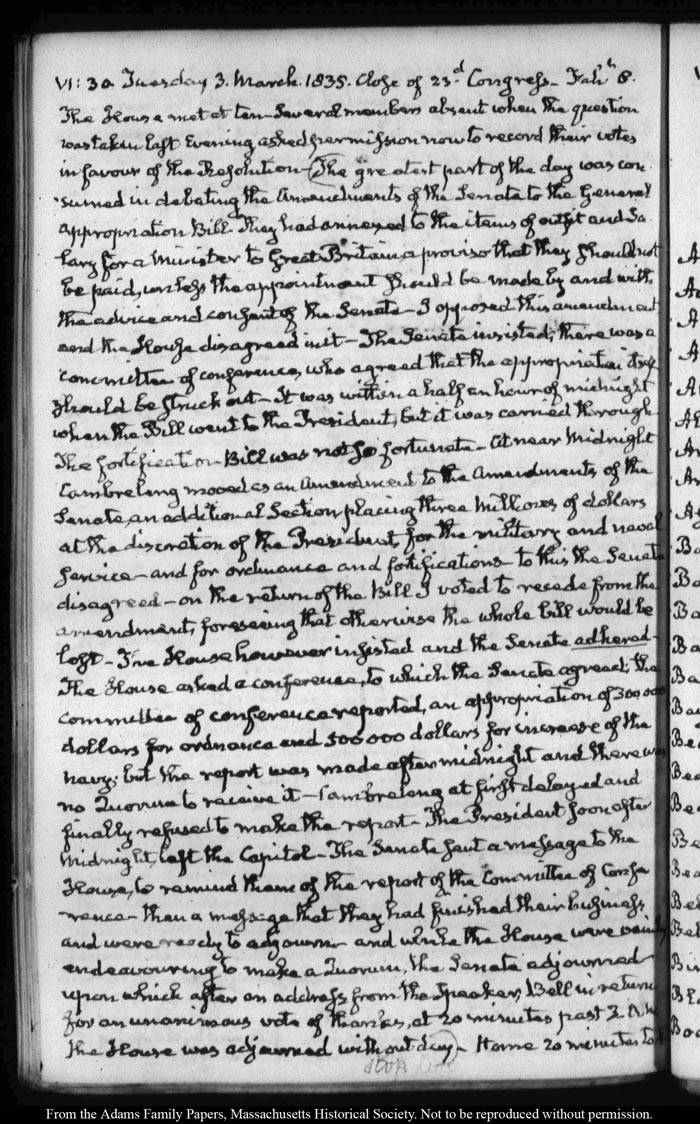 VI: 30 Tuesday 3. March. 1835. Close of 23.d Congress. Fah.h 8.
The House met at ten. Several members absent when the question
was taken last Evening asked permission now to record their votes
in favour of the Resolution. (The greatest part of the day was con
sumed in debating the Amendments of the Senate to the General
Appropriation Bill. They had annexed to the items of outfit and Sa
lary for a Minister to Great Britain a proviso that they should not
be paid, unless the appointment should be made by and with
the advice and consent of the Senate. I opposed this amendment
and the House disagreed in it. The Senate insisted; there was a
committee of conference, who agreed that the appropriation itself
should be struck out. It was within a half an hour of midnight
when the Bill went to the President, but it was carried through.
The fortification Bill was not so fortunate. At near Midnight
Cambreleng moved as an Amendment to the Amendments of the
Senate, an additional Section, placing three Millions of dollars
at the discretion of the President, for the military and naval
service — and for ordnance and fortifications — to this the Senate
disagreed — on the return of the Bill I voted to recede from the
amendment, foreseeing that otherwise the whole bill would be
lost. The House however insisted and the Senate adhered.
The House asked a conference, to which the Senate agreed; the
committee of conference reported, an appropriation of 300 000
dollars for ordnance and 500 000 dollars for increase of the
navy; but the report was made after midnight and there was
no Quorum to receive it — Cambreleng at first delayed and
finally refused to make the report. The President soon after
Midnight, left the Capitol. The Senate sent a message to the
House, to remind them of the report of the Committee of Confe
rence — then a message that they had finished their business
and were ready to adjourn — and while the House were vainly
endeavouring to make a Quorum, the Senate adjourned
upon which after an address from the Speaker, Bell in return
for an unanimous vote of thanks, at 20 minutes past 3
the House was adjourned without day.) Home 20 minutes to
stop
From the Adams Family Papers, Massachusetts Historical Society. Not to be reproduced without permission.